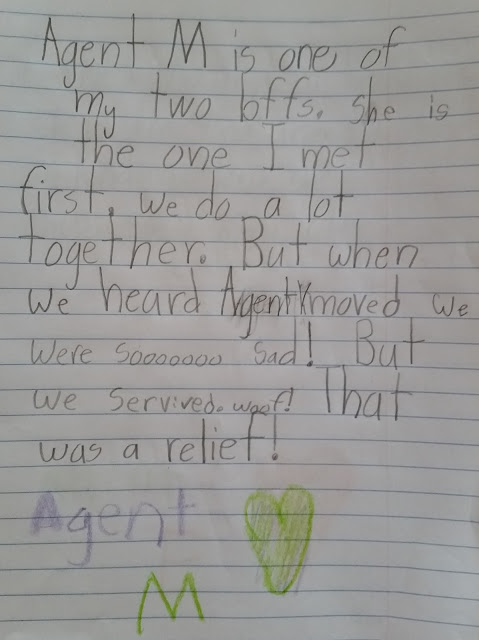 Agent M is one of
my two bffs. She is
the one I met
first. we do a lot
together. But when
we heard Agent moved we
were sooooooo sad! But
we servived. woof! That
was a relief!
Agent
M